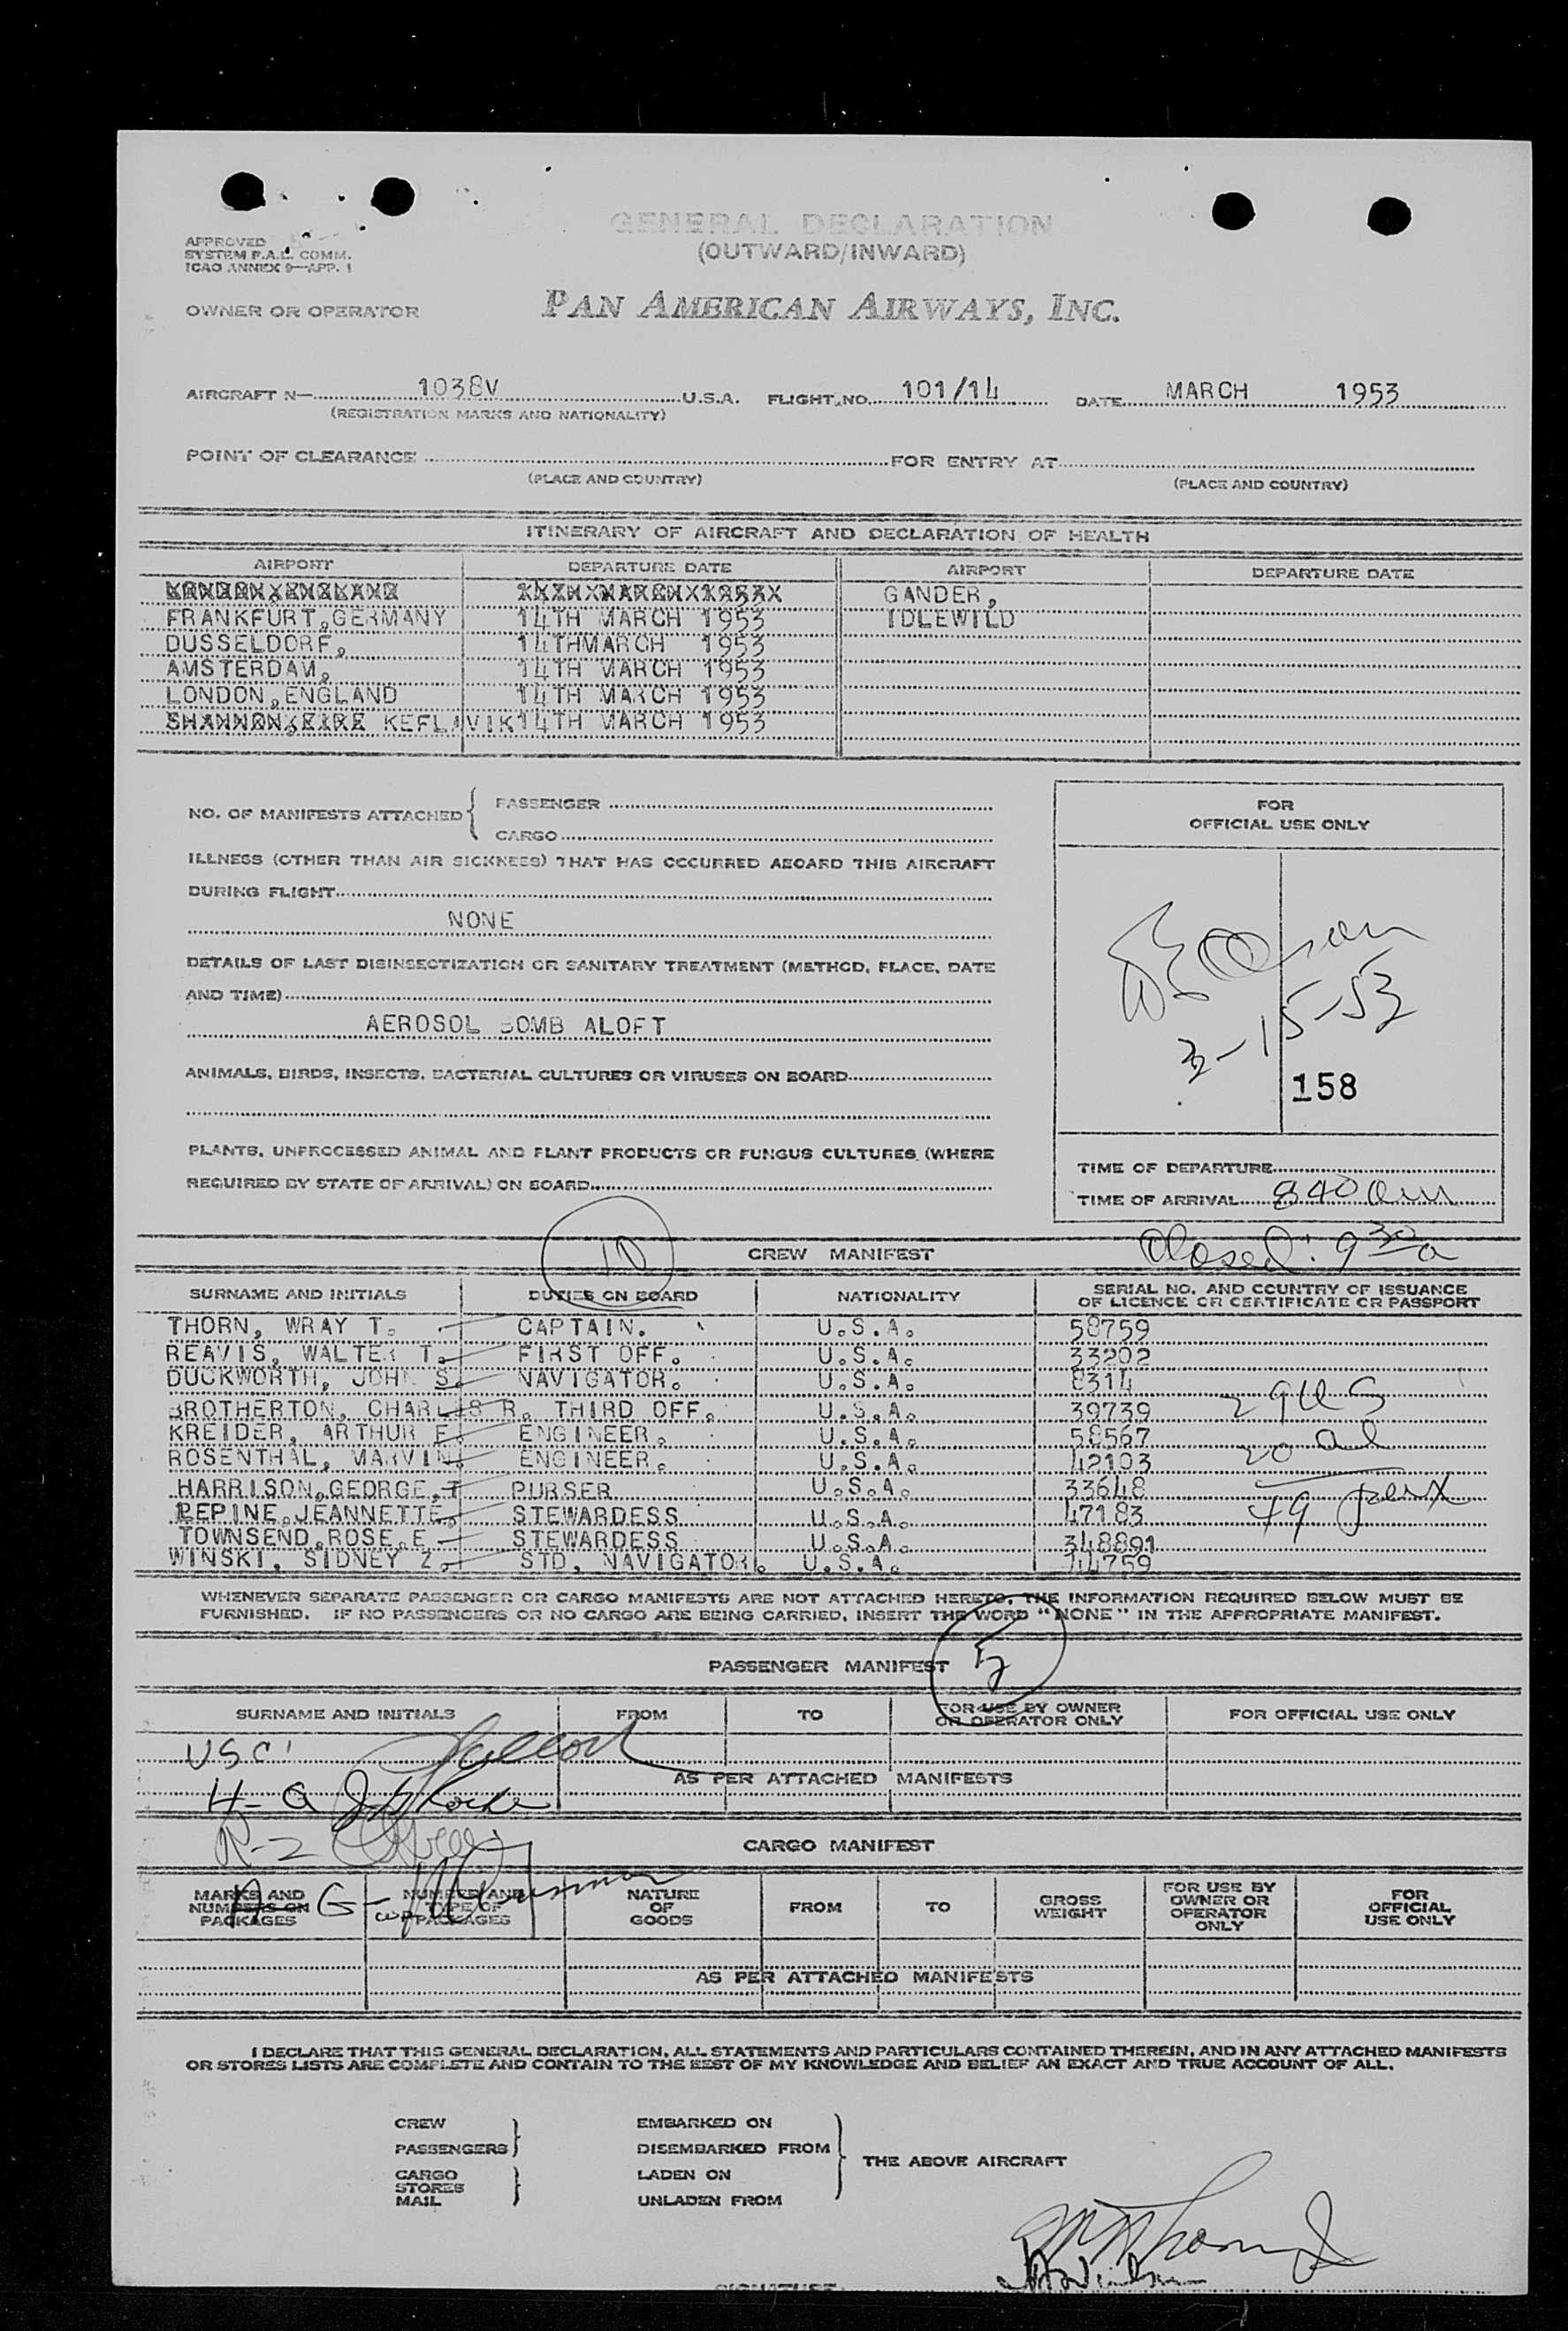 GENERAL DECLARATION
(OUTWARD/INWARD)
APPROVED
SYSTEM F.A.L. COMM.
ICAO ANNEX 9—APP. 1
OWNER OR OPERATOR PAN AMERICAN AIRWAYS, INC.
AIRCRAFT N— 1038V U.S.A. FLIGHT NO. 101/14 DATE MARCH 1953
(REGISTRATION MARKS AND NATIONALITY)
POINT OF CLEARANCE FOR ENTRY AT
(PLACE AND COUNTRY) (PLACE AND COUNTRY)
ITINERARY OF AIRCRAFT AND DECLARATION OF HEALTH
AIRPORT DEPARTURE DATE AIRPORT DEPARTURE DATE
GANDER,
FRANKFURT,GERMANY 14TH MARCH 1953 IDLEWILD
DUSSELDORF, 14THMARCH 1953
AMSTERDAM, 14TH MARCH 1953
LONDON,ENGLAND 14TH MARCH 1953
KEFLAVIK 14TH MARCH 1953
NO. OF MANIFESTS ATTACHED { PASSENGER
CARGO
ILLNESS (OTHER THAN AIR SICKNESS) THAT HAS OCCURRED ABOARD THIS AIRCRAFT
DURING FLIGHT
NONE
DETAILS OF LAST DISINSECTIZATION OR SANITARY TREATMENT (METHOD, PLACE, DATE
AND TIME)
AEROSOL BOMB ALOFT
ANIMALS, BIRDS, INSECTS, BACTERIAL CULTURES OR VIRUSES ON BOARD
PLANTS, UNPROCESSED ANIMAL AND PLANT PRODUCTS OR FUNGUS CULTURES (WHERE
REQUIRED BY STATE OF ARRIVAL) ON BOARD
FOR
OFFICIAL USE ONLY
3-15-53
158
TIME OF DEPARTURE
TIME OF ARRIVAL 840 am
Closed: 9 30 a
10
CREW MANIFEST
SURNAME AND INITIALS DUTIES ON BOARD NATIONALITY SERIAL NO. AND COUNTRY OF ISSUANCE
OF LICENCE OR CERTIFICATE OR PASSPORT
THORN, WRAY T. CAPTAIN. U.S.A. 58759
REAVIS, WALTER T. FIRST OFF. U.S.A. 33202
DUCKWORTH, JOHN S. NAVIGATOR. U.S.A. 8314
BROTHERTON, CHARLES R. THIRD OFF. U.S.A. 39739 29 US
KREIDER, ARTHUR E. ENGINEER. U.S.A. 58567
ROSENTHAL, MARVIN. ENGINEER. U.S.A. 42103 20 al
HARRISON,GEORGE,T PURSER U.S.A. 33648
PEPINE,JEANNETTE, STEWARDESS U.S.A. 47183 49
TOWNSEND,ROSE,E STEWARDESS U.S.A. 348891
WINSKI, SIDNEY Z. STD. NAVIGATOR. U.S.A. 14759
WHENEVER SEPARATE PASSENGER OR CARGO MANIFESTS ARE NOT ATTACHED HERETO, THE INFORMATION REQUIRED BELOW MUST BE
FURNISHED. IF NO PASSENGERS OR NO CARGO ARE BEING CARRIED, INSERT THE WORD "NONE" IN THE APPROPRIATE MANIFEST.
PASSENGER MANIFEST 5
SURNAME AND INITIALS FROM TO FOR USE BY OWNER
OR OPERATOR ONLY FOR OFFICIAL USE ONLY
USC
AS PER ATTACHED MANIFESTS
R-2
CARGO MANIFEST
MARKS AND
NUMBERS ON
PACKAGES NUMBER AND
TYPE OF
PACKAGES NATURE
OF
GOODS FROM TO GROSS
WEIGHT FOR USE BY
OWNER OR
OPERATOR
ONLY FOR
OFFICIAL
USE ONLY
AS PER ATTACHED MANIFESTS
I DECLARE THAT THIS GENERAL DECLARATION, ALL STATEMENTS AND PARTICULARS CONTAINED THEREIN, AND IN ANY ATTACHED MANIFESTS
OR STORES LISTS ARE COMPLETE AND CONTAIN TO THE BEST OF MY KNOWLEDGE AND BELIEF AN EXACT AND TRUE ACCOUNT OF ALL.
CREW EMBARKED ON
PASSENGERS } DISEMBARKED FROM
THE ABOVE AIRCRAFT
CARGO LADEN ON
STORES
MAIL } UNLADEN FROM
SIGNATURE